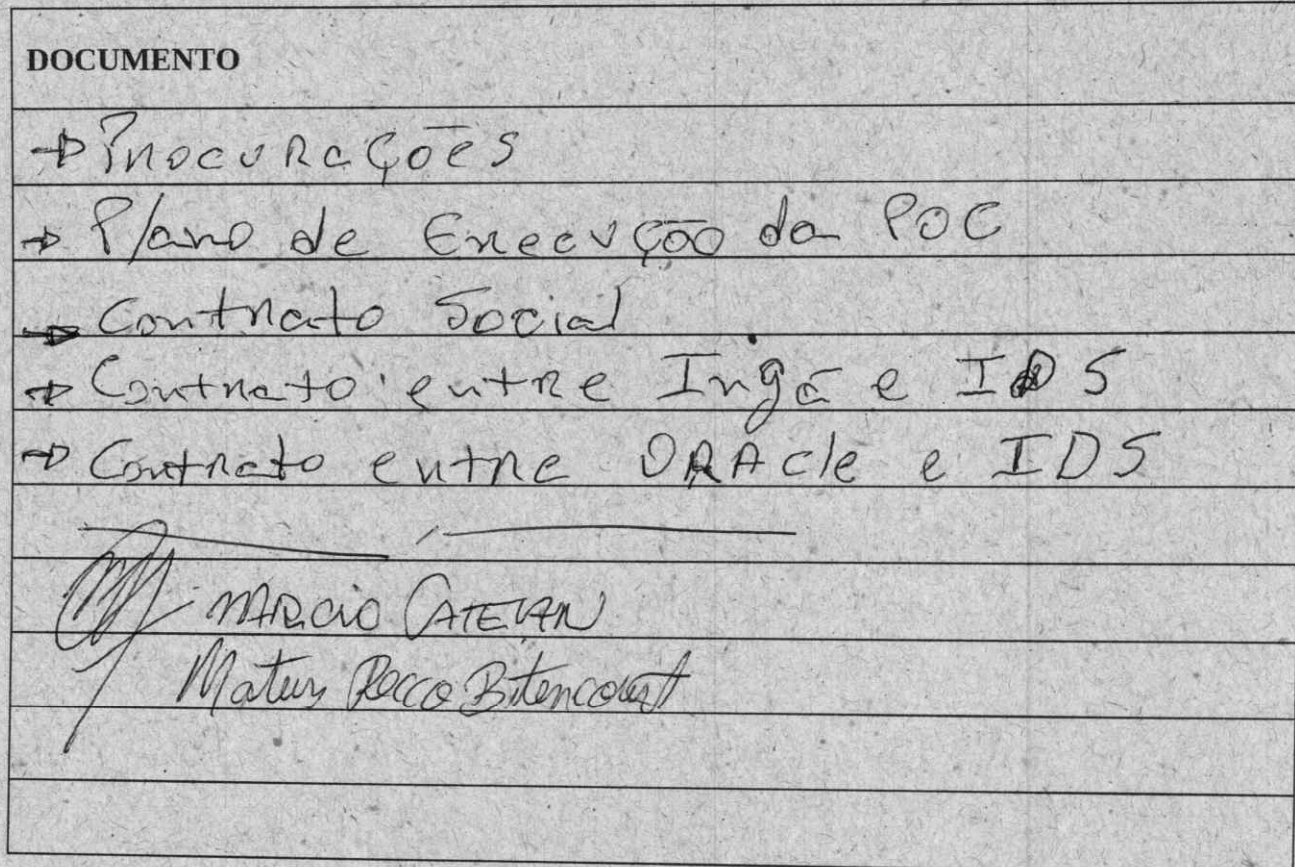 DOCUMENTO
→ Procurações
→ Plano de Execução da POC
→ Contrato Social
→ Contrato entre Ingá e IDS
→ Contrato entre ORAcle e IDS
MARCIO CATELAN
Mateus Recco Bitencourt